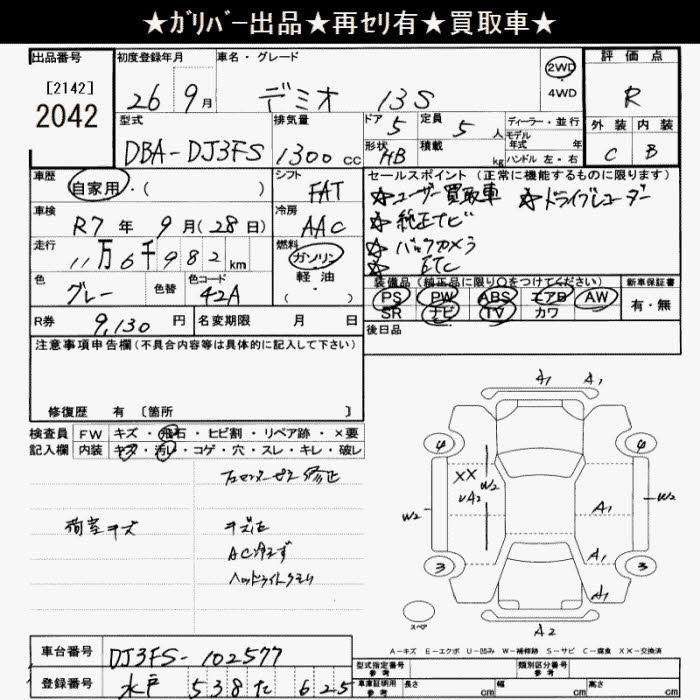 ★ｶﾞﾘﾊﾞｰ出品★再ｾﾘ有★買取車★
出品番号 初度登録年月 車名・グレード 評価点
［2142］
2042
26 9月 デミオ 13S 2WD・4WD R
型式 排気量 ドア 5 定員 5人 ディーラー・並行 外装 内装
モデル年式 年式
DBA-DJ3FS 1300cc 形状 HB 積載 kg ハンドル 左・右 C B
車歴 自家用・( ) シフト FAT セールスポイント (正常に機能するものに限ります)
☆ユーザー買取車 ☆ドライブレコーダー
車検 R7年 9月(28日) 冷房 AAC ☆純正ナビ
走行 11万6千982km 燃料 ガソリン 軽油・( ) ☆バックカメラ
☆ETC
色 グレー 色替 色コード 42A 装備品(純正品に限り○をつけてください) 新車保証書
PS PW ABS エアB AW 有・無
SR ナビ TV カワ
R券 9,130円 名変期限 月 日 後日品
注意事項申告欄(不具合内容等は具体的に記入して下さい)
修復歴 有 〔箇所 〕
検査員 FW キズ・飛石・ヒビ割・リペア跡・×要
記入欄 内装 キズ・汚レ・コゲ・穴・スレ・キレ・破レ
修正
荷室キズ
AC冷えず
ヘッドライトクモリ
A1 A1
4 4
XX W2
UA2 A1
W2 W2
3 A1 3
A1
スペア A2
A-キズ E-エクボ U-凹み W-補修跡 S-サビ C-腐食 XX-交換済
車台番号 DJ3FS-102577 型式指定番号 参考 類別区分番号 参考
登録番号 水戸 538 た 625 車庫証明用 参考 長さ cm 幅 cm 高さ cm